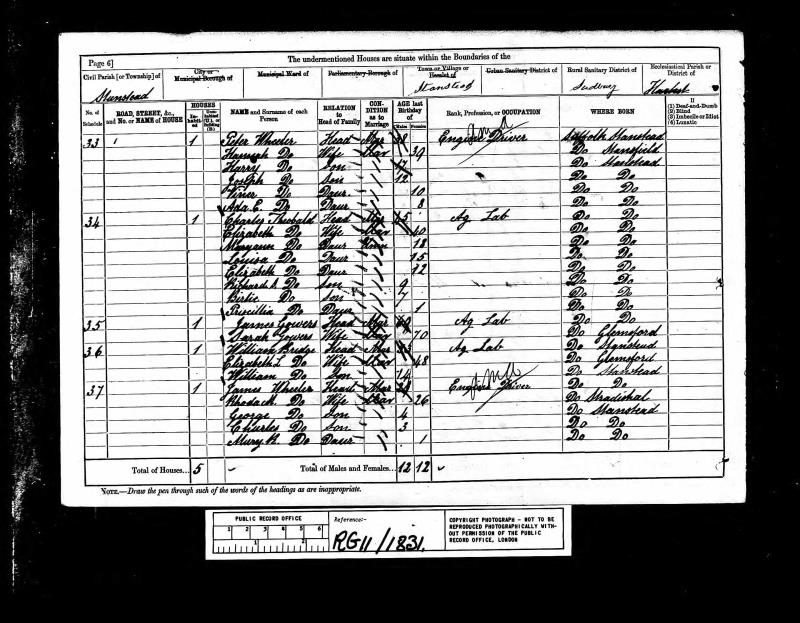 The undermentioned Houses are situate within the Boundaries of the
Page 6]
Civil Parish [or Township] of
Stanstead
City or Municipal Borough of
Municipal Ward of
Parliamentary Borough of
Town or Village or Hamlet of
Stanstead
Urban Sanitary District of
Rural Sanitary District of
Sudbury
Ecclesiastical Parish or District of
Hartest
No. of Schedule
ROAD, STREET, &c., and No. or NAME of HOUSE
HOUSES
NAME and Surname of each Person
RELATION to Head of Family
CONDITION as to Marriage
AGE last Birthday of
Males
Females
Rank, Profession, or OCCUPATION
WHERE BORN
(1) Deaf-and-Dumb
(2) Blind
(3) Imbecile or Idiot
(4) Lunatic
33 1 Peter Wheeler Head Mar 38 Engine Driver Suffolk Stanstead
Hannah Do Wife Mar 39 Do Stansfield
Harry Do Son 17 Do Stanstead
Joseph Do Son 12 Do Do
Do Daur 10 Do Do
Ada E. Do Daur 8 Do Do
34 1 Charles Theobald Head Mar 45 Ag Lab Do Do
Elizabeth Do Wife Mar 40 Do Do
Maryann Do Daur Unm 18 Do Do
Louisa Do Daur 15 Do Do
Elizabeth Do Daur 12 Do Do
Richard A. Do Son 9 Do Do
Bertie Do Son 7 Do Do
Priscillia Do Daur 1 Do Do
35 1 James Gowers Head Mar 69 Ag Lab Do Do
Sarah Gowers Wife Mar 70 Do Glemsford
36 1 William Bridge Head Mar Ag Lab Do Stanstead
Elizabeth L. Do Wife Mar 48 Do Glemsford
William Do Son 14 Do Stanstead
37 1 James Wheeler Head Mar 28 Engine Driver Do Do
Rhoda M. Do Wife Mar 26 Do Stradishal
George Do Son 4 Do Stanstead
Charles Do Son 3 Do Do
Mary Do Daur 1 Do Do
Total of Houses... 5 Total of Males and Females... 12 12
NOTE.—Draw the pen through such of the words of the headings as are inappropriate.
PUBLIC RECORD OFFICE
1 2 3 4 5 6
1 2
Reference:-
RG11/1831.
COPYRIGHT PHOTOGRAPH - NOT TO BE
REPRODUCED PHOTOGRAPHICALLY WITH-
OUT PERMISSION OF THE PUBLIC
RECORD OFFICE, LONDON